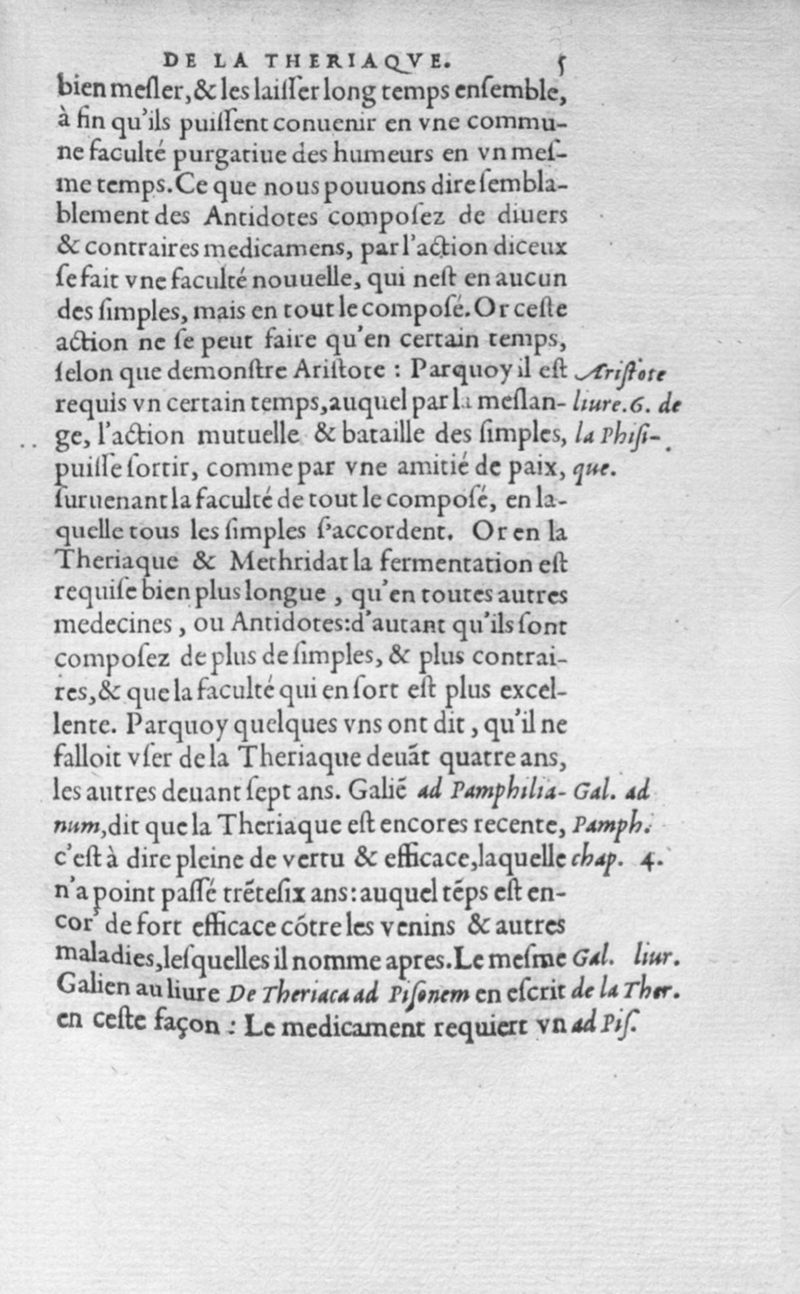 DE LA THERIAQVE. 5
bien meſler,& les laiſſer long temps enſemble,
à fin qu'ils puiſſent conuenir en vne commu-
ne faculté purgatiue des humeurs en vn meſ-
me temps.Ce que nous pouuons dire ſembla-
blement des Antidotes compoſez de diuers
& contraires medicamens, par l'action diceux
ſe fait vne faculté nouuelle, qui neſt en aucun
des ſimples, mais en tout le compoſé.Or ceſte
action ne ſe peut faire qu'en certain temps,
ſelon que demonſtre Ariſtote : Parquoy il eſt
requis vn certain temps,auquel par la meſlan-
ge, l'action mutuelle & bataille des ſimples,
puiſſe ſortir, comme par vne amitié de paix,
ſuruenant la faculté de tout le compoſé, en la-
quelle tous les ſimples ſ'accordent. Or en la
Theriaque & Methridat la fermentation eſt
requiſe bien plus longue , qu'en toutes autres
medecines , ou Antidotes:d'autant qu'ils ſont
compoſez de plus de ſimples, & plus contrai-
res,& que la faculté qui en ſort eſt plus excel-
lente. Parquoy quelques vns ont dit , qu'il ne
falloit vſer de la Theriaque deuãt quatre ans,
les autres deuant ſept ans. Galiẽ ad Pamphilia-
num,dit que la Theriaque eſt encores recente,
c'eſt à dire pleine de vertu & efficace,laquelle
n'a point paſſé trẽteſix ans:auquel tẽps eſt en-
cor' de fort efficace cõtre les venins & autres
maladies,leſquelles il nomme apres.Le meſme
Galien au liure De Theriaca ad Piſonem en eſcrit
en ceſte façon : Le medicament requiert vn
Ariſtote
liure.6. de
la Phiſi-
que.
Gal. ad
Pamph.
chap. 4.
Gal. liur.
de la Ther.
ad Piſ.